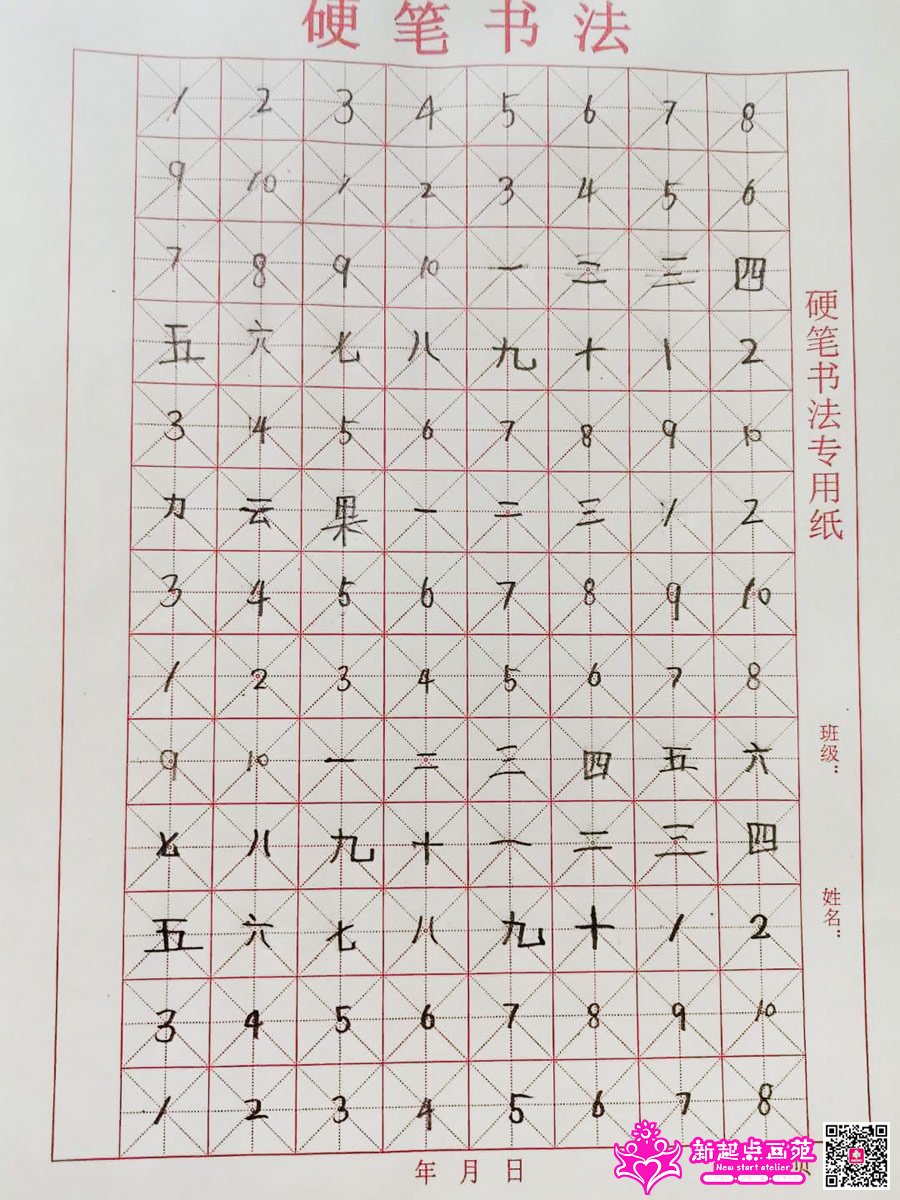 硬笔书法
1 2 3 4 5 6 7 8
9 10 1 2 3 4 5 6
7 8 9 10 一 二 三 四
五 六 七 八 九 十 1 2
3 4 5 6 7 8 9 10
力 云 果 一 二 三 1 2
3 4 5 6 7 8 9 10
1 2 3 4 5 6 7 8
9 10 一 二 三 四 五 六
七 八 九 十 一 二 三 四
五 六 七 八 九 十 1 2
3 4 5 6 7 8 9 10
1 2 3 4 5 6 7 8
硬笔书法专用纸
班级：
姓名：
年 月 日
新起点画苑
New start atelier